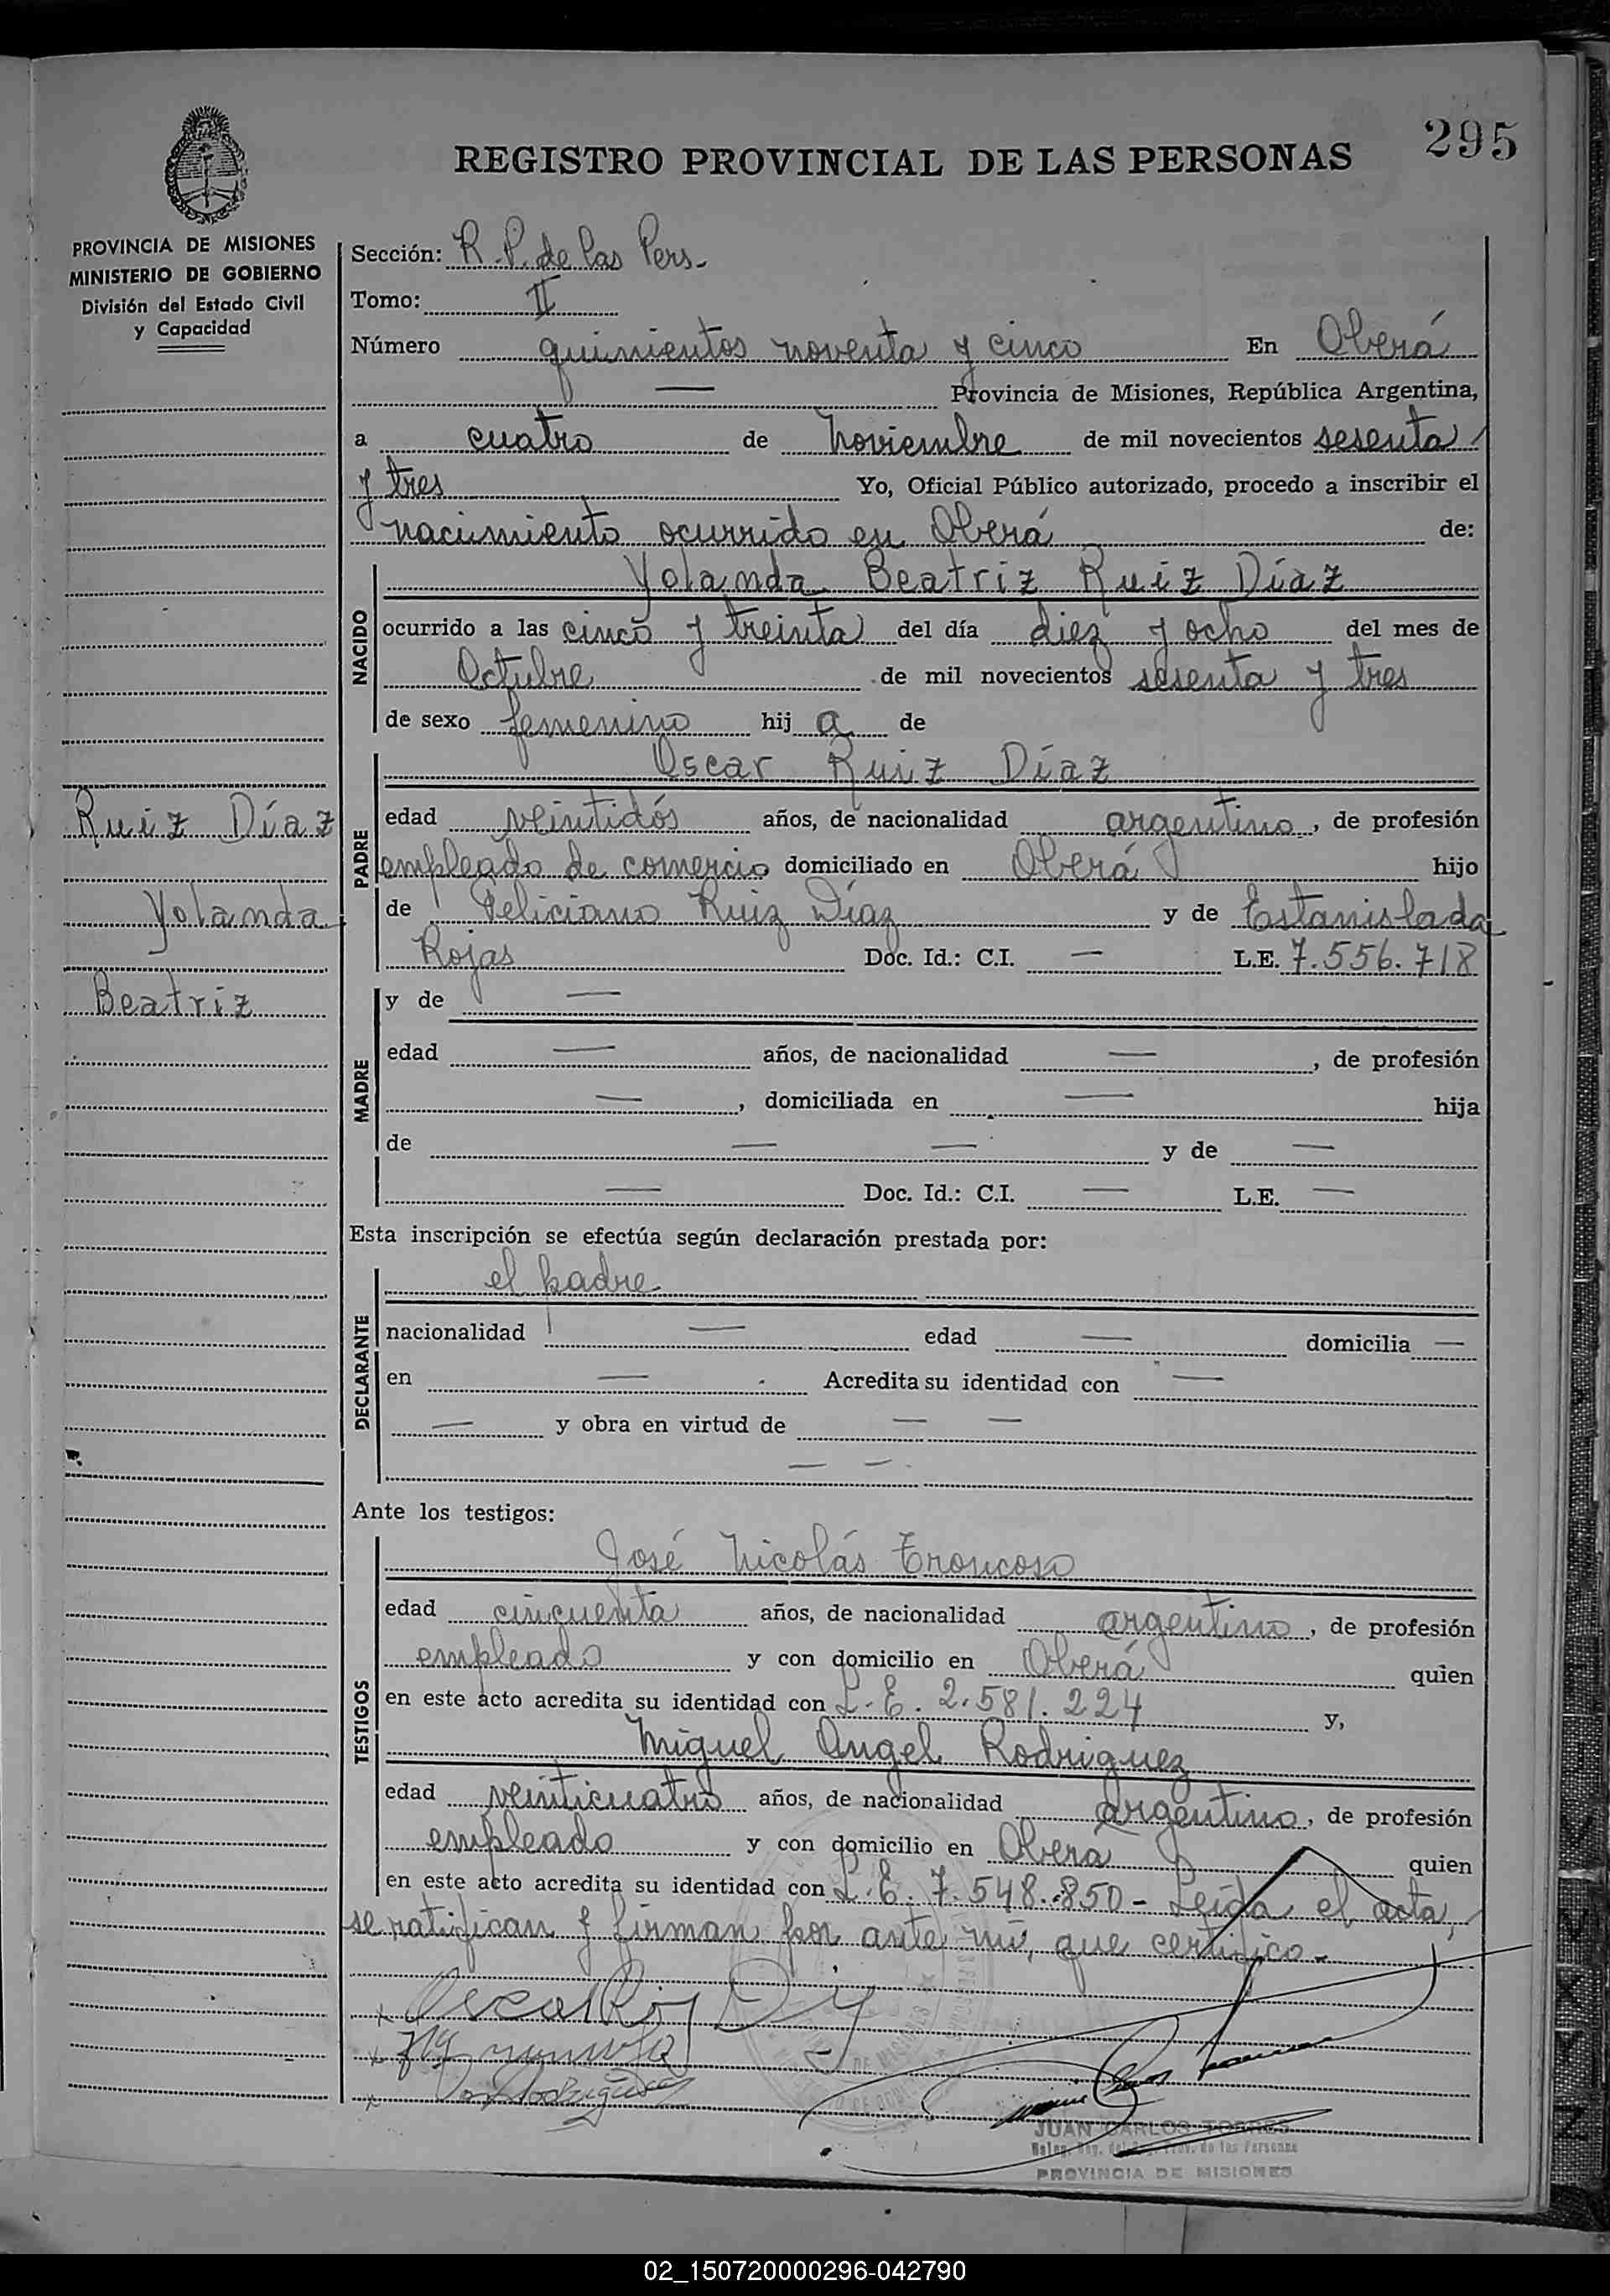 295
REGISTRO PROVINCIAL DE LAS PERSONAS
PROVINCIA DE MISIONES
MINISTERIO DE GOBIERNO
División del Estado Civil
y Capacidad
Sección: R.P. de las Pers.
Tomo: II
Número quinientos noventa y cinco En Oberá
— Provincia de Misiones, República Argentina,
a cuatro de Noviembre de mil novecientos sesenta
y tres Yo, Oficial Público autorizado, procedo a inscribir el
nacimiento ocurrido en Oberá de:
NACIDO
Yolanda Beatriz Ruiz Díaz
ocurrido a las cinco y treinta del día diez y ocho del mes de
Octubre de mil novecientos sesenta y tres
de sexo femenino hij a de
PADRE
Oscar Ruiz Díaz
edad veintidós años, de nacionalidad argentino, de profesión
empleado de comercio domiciliado en Oberá hijo
de Feliciano Ruiz Díaz y de Estanislada
Rojas Doc. Id.: C.I. — L.E. 7.556.718
Ruiz Díaz
Yolanda
Beatriz
MADRE
y de —
edad — años, de nacionalidad — , de profesión
— , domiciliada en — hija
de — — y de —
— Doc. Id.: C.I. — L.E. —
Esta inscripción se efectúa según declaración prestada por:
DECLARANTE
el padre
nacionalidad — edad — domicilia —
en — Acredita su identidad con —
— y obra en virtud de — —
— —
Ante los testigos:
TESTIGOS
José Nicolás Troncoso
edad cincuenta años, de nacionalidad argentino, de profesión
empleado y con domicilio en Oberá quien
en este acto acredita su identidad con L.E. 2.581.224 y,
Miguel Angel Rodriguez
edad veinticuatro años, de nacionalidad argentino, de profesión
empleado y con domicilio en Oberá quien
en este acto acredita su identidad con L.E. 7.548.850 - Leída el acta,
se ratifican y firman por ante mí, que certifico.-
JUAN CARLOS TORRES
de las Personas
PROVINCIA DE MISIONES
02_150720000296-042790